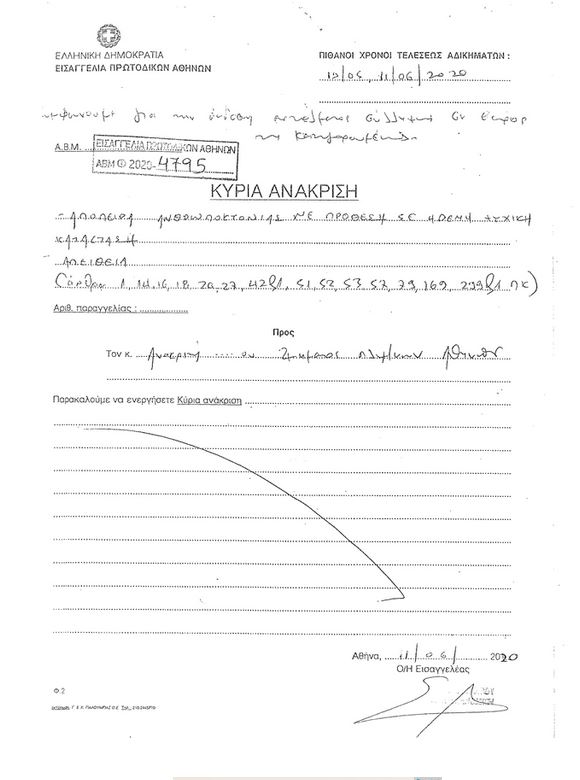 ΕΛΛΗΝΙΚΗ ΔΗΜΟΚΡΑΤΙΑ
ΕΙΣΑΓΓΕΛΙΑ ΠΡΩΤΟΔΙΚΩΝ ΑΘΗΝΩΝ
ΠΙΘΑΝΟΙ ΧΡΟΝΟΙ ΤΕΛΕΣΕΩΣ ΑΔΙΚΗΜΑΤΩΝ :
10/06, 11/06/2020
για την έκδοση εντάλματος σύλληψης
της κατηγορουμένης
Α.Β.Μ.
ΕΙΣΑΓΓΕΛΙΑ ΠΡΩΤΟΔΙΚΩΝ ΑΘΗΝΩΝ
ΑΒΜ 2020-4795
ΚΥΡΙΑ ΑΝΑΚΡΙΣΗ
ΑΠΟΠΕΙΡΑ ΑΝΘΡΩΠΟΚΤΟΝΙΑΣ ΜΕ ΠΡΟΘΕΣΗ ΣΕ ΗΡΕΜΗ ΨΥΧΙΚΗ
ΚΑΤΑΣΤΑΣΗ
ΑΠΕΙΘΕΙΑ
(άρθρα 1, 14, 16, 18, 26, 27, 42§1, 51, 52, 53, 57, 79, 169, 299§1 ΠΚ)
Αριθ. παραγγελίας :
Προς
Τον κ. Ανακριτή του Τμήματος Πλημ/κών Αθηνών
Παρακαλούμε να ενεργήσετε Κύρια ανάκριση
Αθήνα, 11/06/2020
Ο/Η Εισαγγελέας
Φ.2